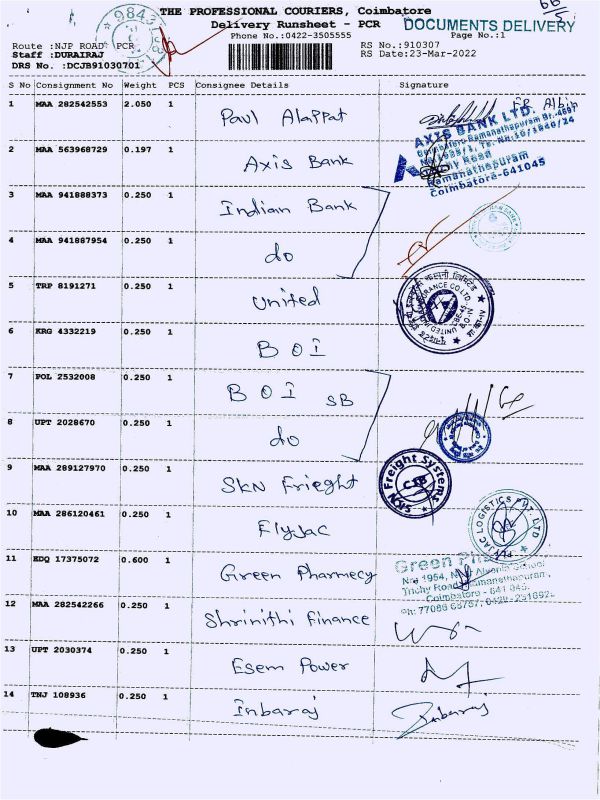 THE PROFESSIONAL COURIERS, Coimbatore
Delivery Runsheet - PCR
DOCUMENTS DELIVERY
Phone No.:0422-3505555
Page No.:1
Route :NJP ROAD PCR
RS No.:910307
Staff :DURAIRAJ
RS Date:23-Mar-2022
DRS No. :DCJB91030701
9843
S No Consignment No Weight PCS Consignee Details Signature
1 MAA 282542553 2.050 1 Paul Alappat
AXIS BANK LTD.
Ramanathapuram
Coimbatore-641045
2 MAA 563968729 0.197 1 Axis Bank
3 MAA 941888373 0.250 1 Indian Bank
4 MAA 941887954 0.250 1 do
5 TRP 8191271 0.250 1 united
6 KRG 4332219 0.250 1 BOI
7 POL 2532008 0.250 1 BOI SB
8 UPT 2028670 0.250 1 do
9 MAA 289127970 0.250 1 SKN Frieght
SKN Freight Systems
CJB
10 MAA 286120461 0.250 1 Flyjac
JAC LOGISTICS PVT LTD
11 EDQ 17375072 0.600 1 Green Pharmecy
Green
Trichy Road
Coimbatore - 641 045.
12 MAA 282542266 0.250 1 Shrinithi Finance
13 UPT 2030374 0.250 1 Esem Power
14 TNJ 108936 0.250 1 Inbaraj
Inbaraj